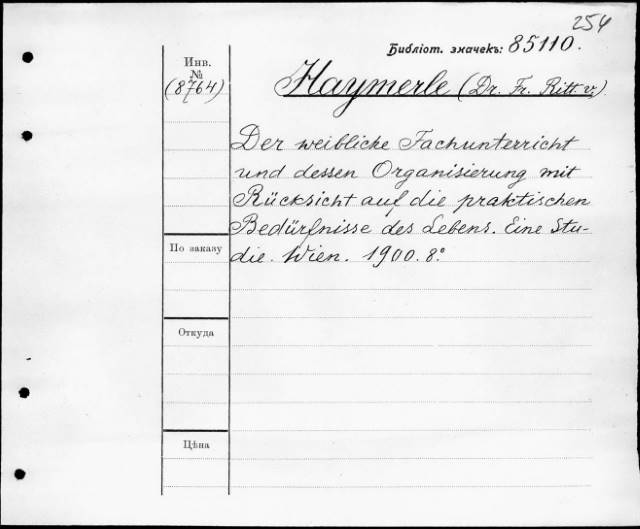 254
Библіот. значекъ: 85110.
Инв.
№
(8764)
Haymerle (Dr. Fr. Ritt. v.)
Der weibliche Fachunterricht
und dessen Organisierung mit
Rücksicht auf die praktischen
Bedürfnisse des Lebens. Eine Stu-
die. Wien. 1900. 8º
По заказу
Откуда
Цѣна